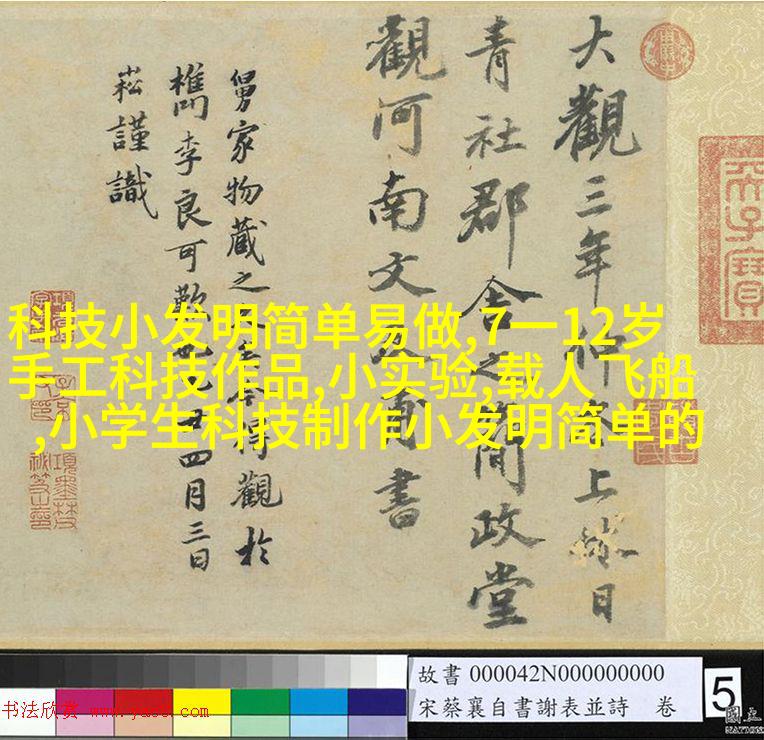 大觀三年仲上日
青社郡舍之簡政堂
觀河南文書
舅家物藏之得觀於
李良可歎丑四月三日
崧謹識
科技小发明简单易做,7一12岁
手工科技作品,小实验,载人飞船
,小学生科技制作小发明简单的
故書 000042N000000000
宋蔡襄自書謝表並詩 卷
5
國立
书法欣赏 www.yac8.com